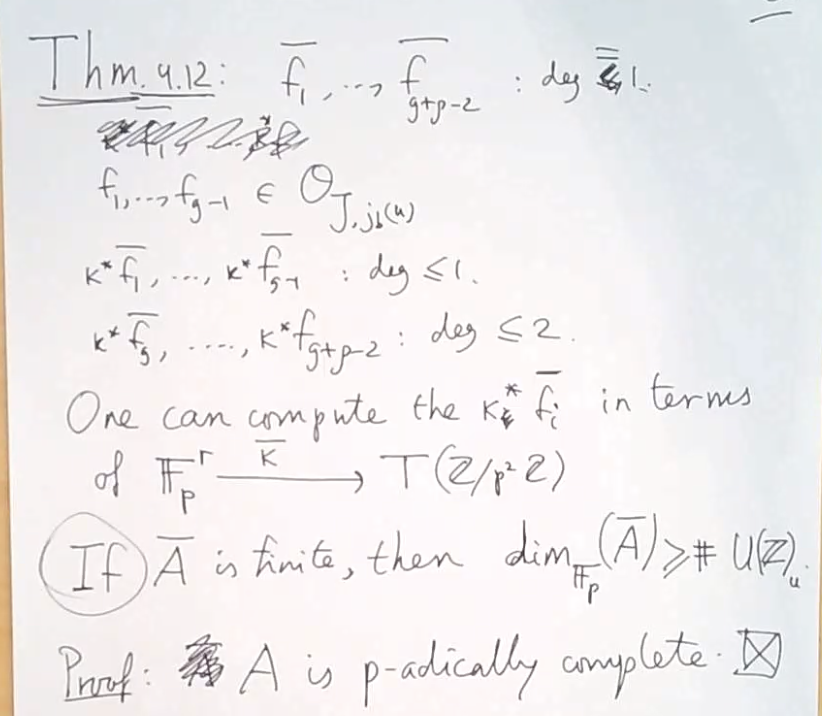 Thm. 4.12: f̄₁, ..., f̄_{g+ρ-2} : deg ≤ 1.
f₁, ..., f_{g-1} ∈ O_{J, j_b(u)}
κ* f̄₁, ..., κ* f̄_{g-1} : deg ≤ 1.
κ* f̄_g, ...., κ* f_{g+ρ-2} : deg ≤ 2.
One can compute the κ* f̄_i in terms
of 𝔽_p^r —κ̄→ T(ℤ/p²ℤ)
If Ā is finite, then dim_{𝔽_p}(Ā) ≥ # U(ℤ)_u.
Proof: A is p-adically complete. ⊠